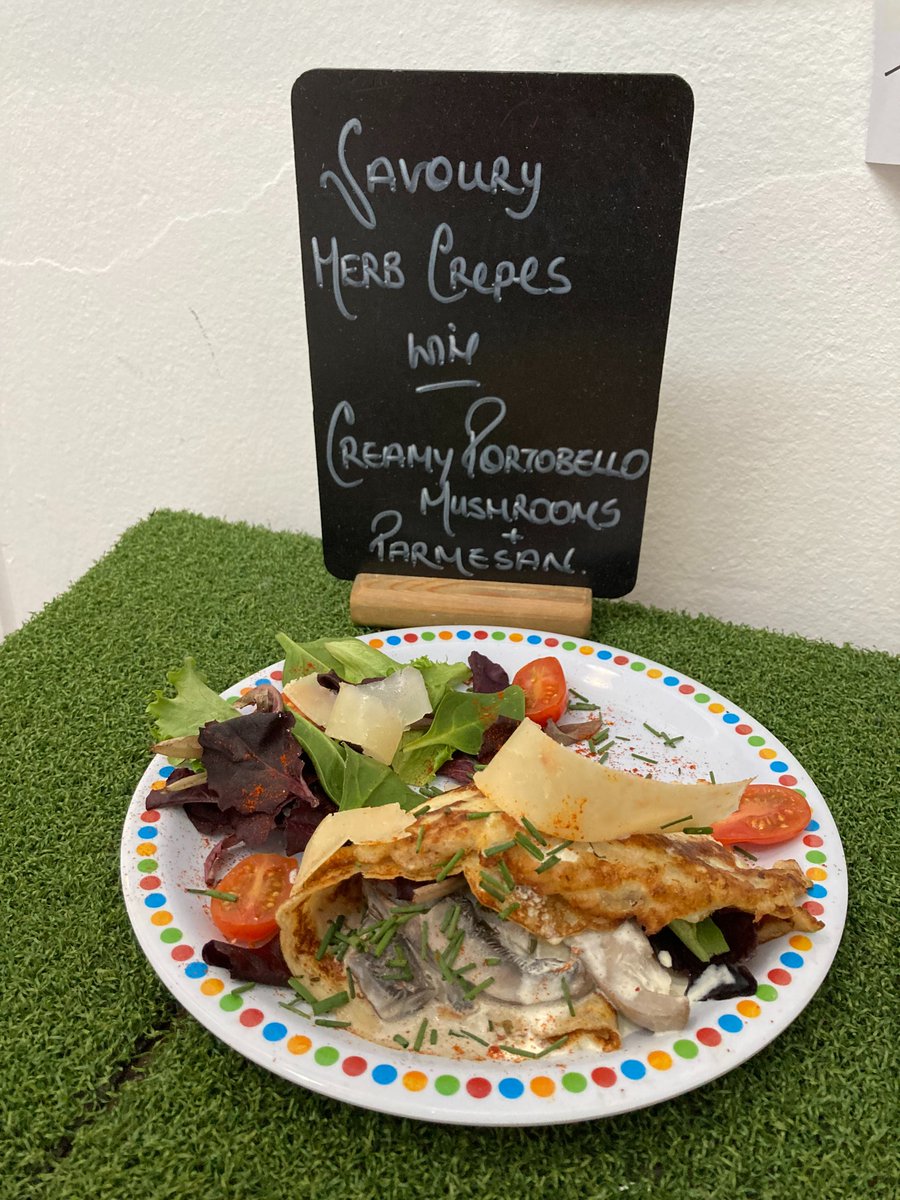 Savoury
Herb Crepes
with
Creamy Portobello
Mushrooms
+
Parmesan.